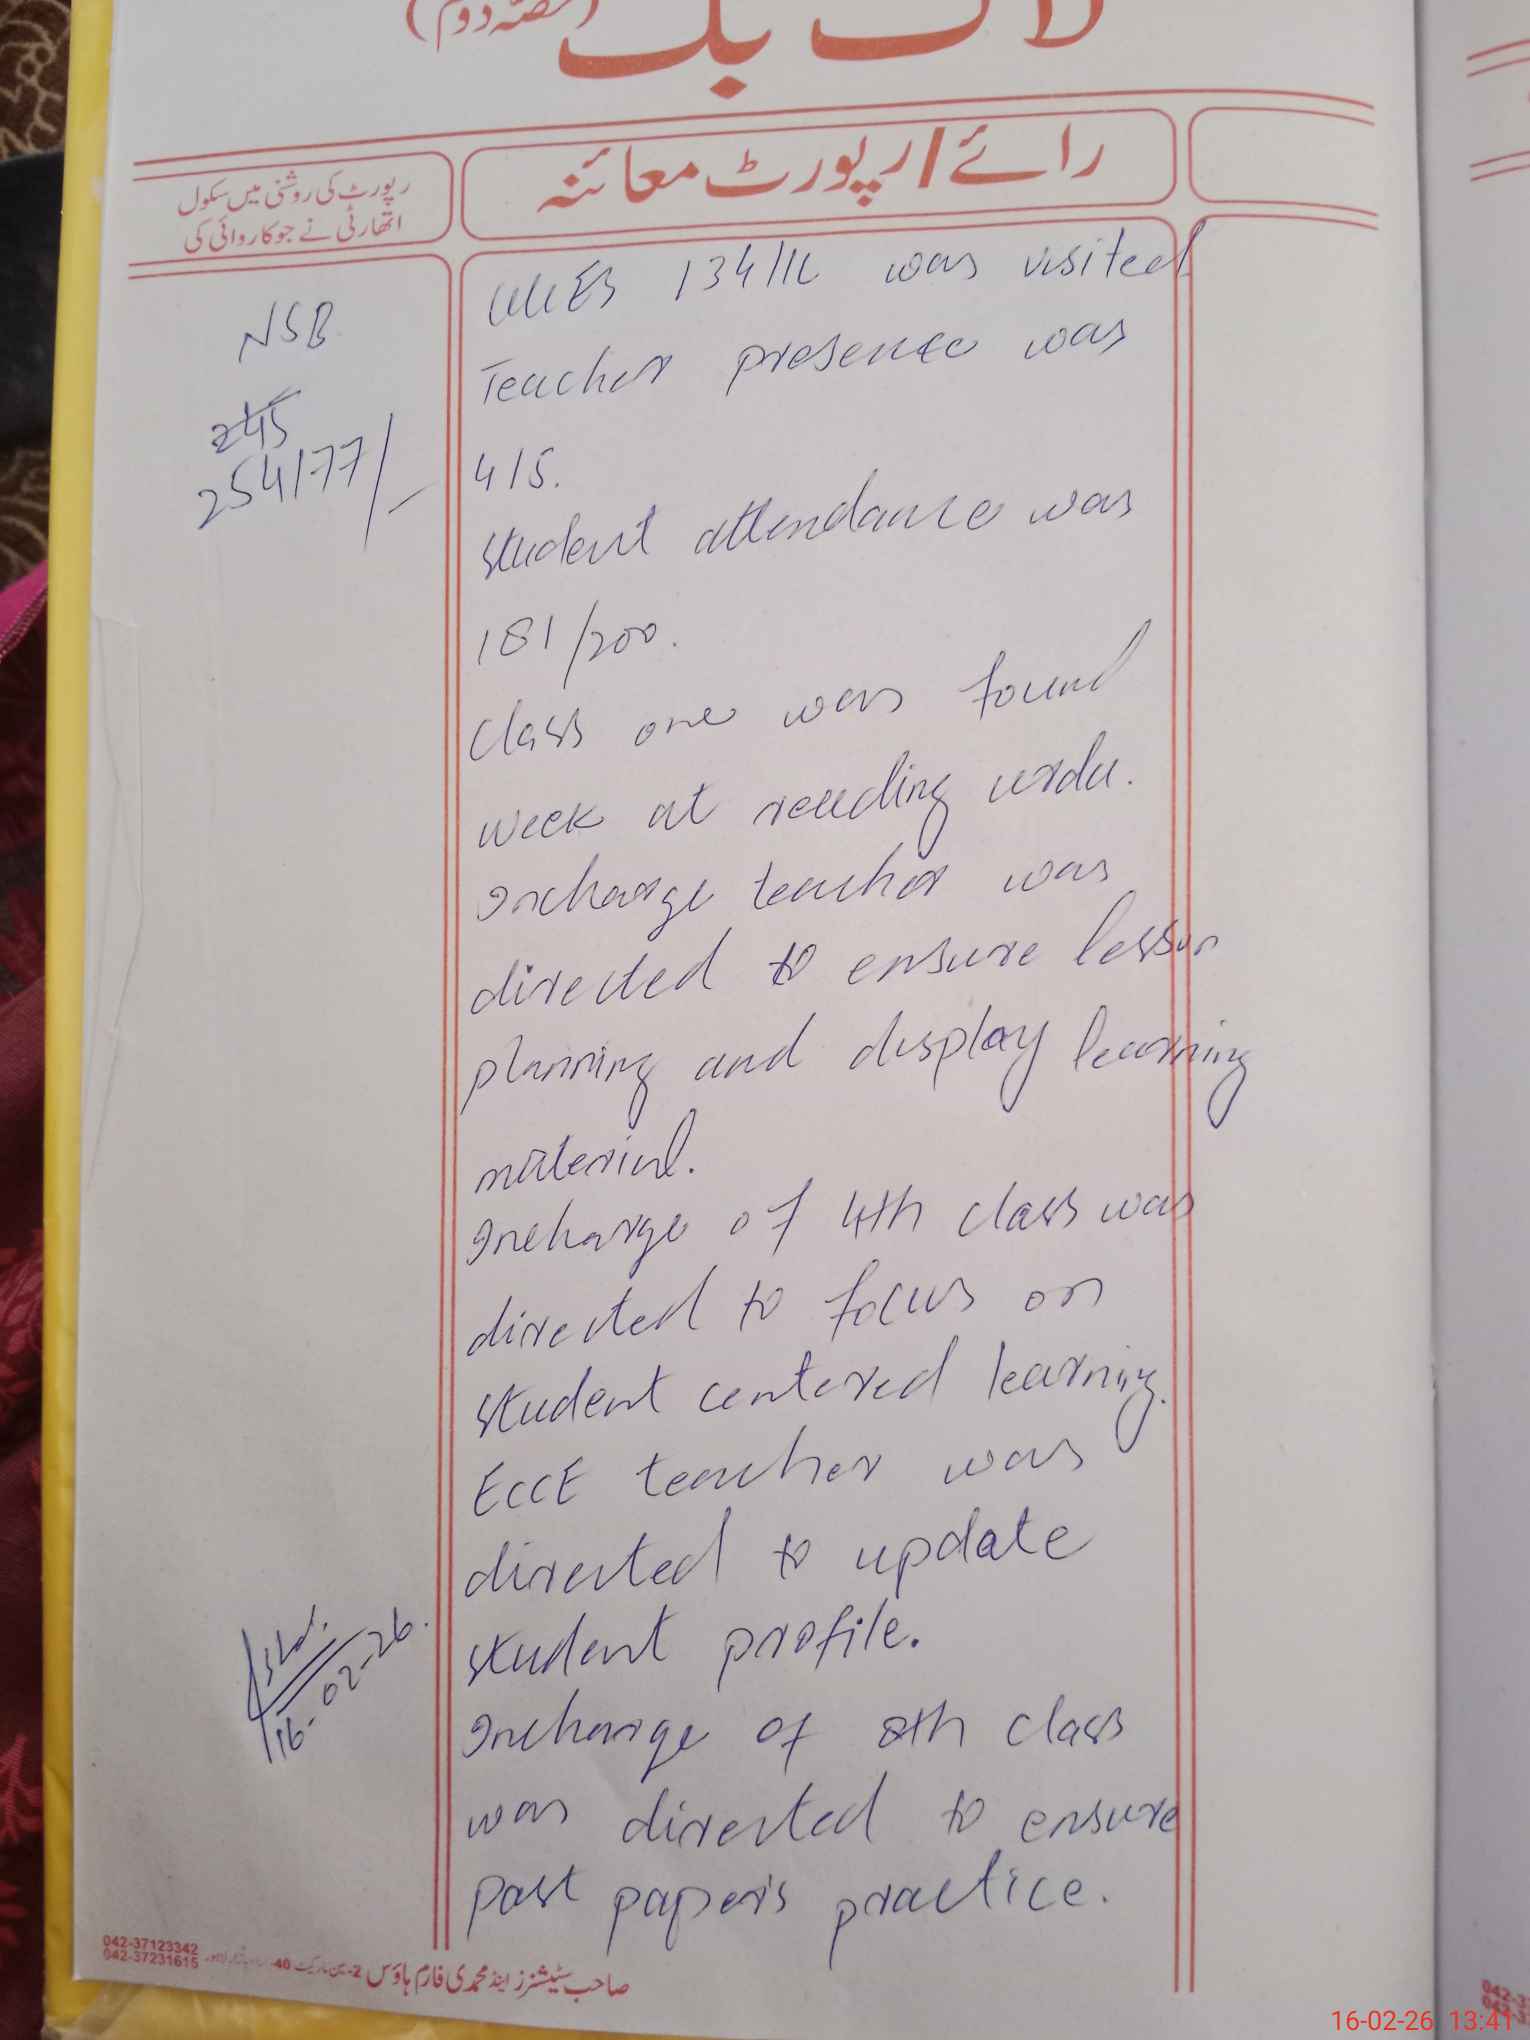 لاگ بک (حصہ دوم)
رائے/رپورٹ معائنہ
رپورٹ کی روشنی میں سکول
اتھارٹی نے جو کاروائی کی
NSB
245
254177/-
134/16 was visited
Teacher presence was
4/5.
Student attendance was
181/200.
Class one was found
week at reading urdu.
Incharge teacher was
directed to ensure lesson
planning and display learning
material.
Incharge of 4th class was
directed to focus on
student centered learning.
ECCE teacher was
directed to update
student profile.
Incharge of 8th class
was directed to ensure
past papers practice.
16-02-26.
042-37123342
042-37231615
صاحب سٹیشنرز اینڈ محمدی فارم ہاؤس
16-02-26 13:41